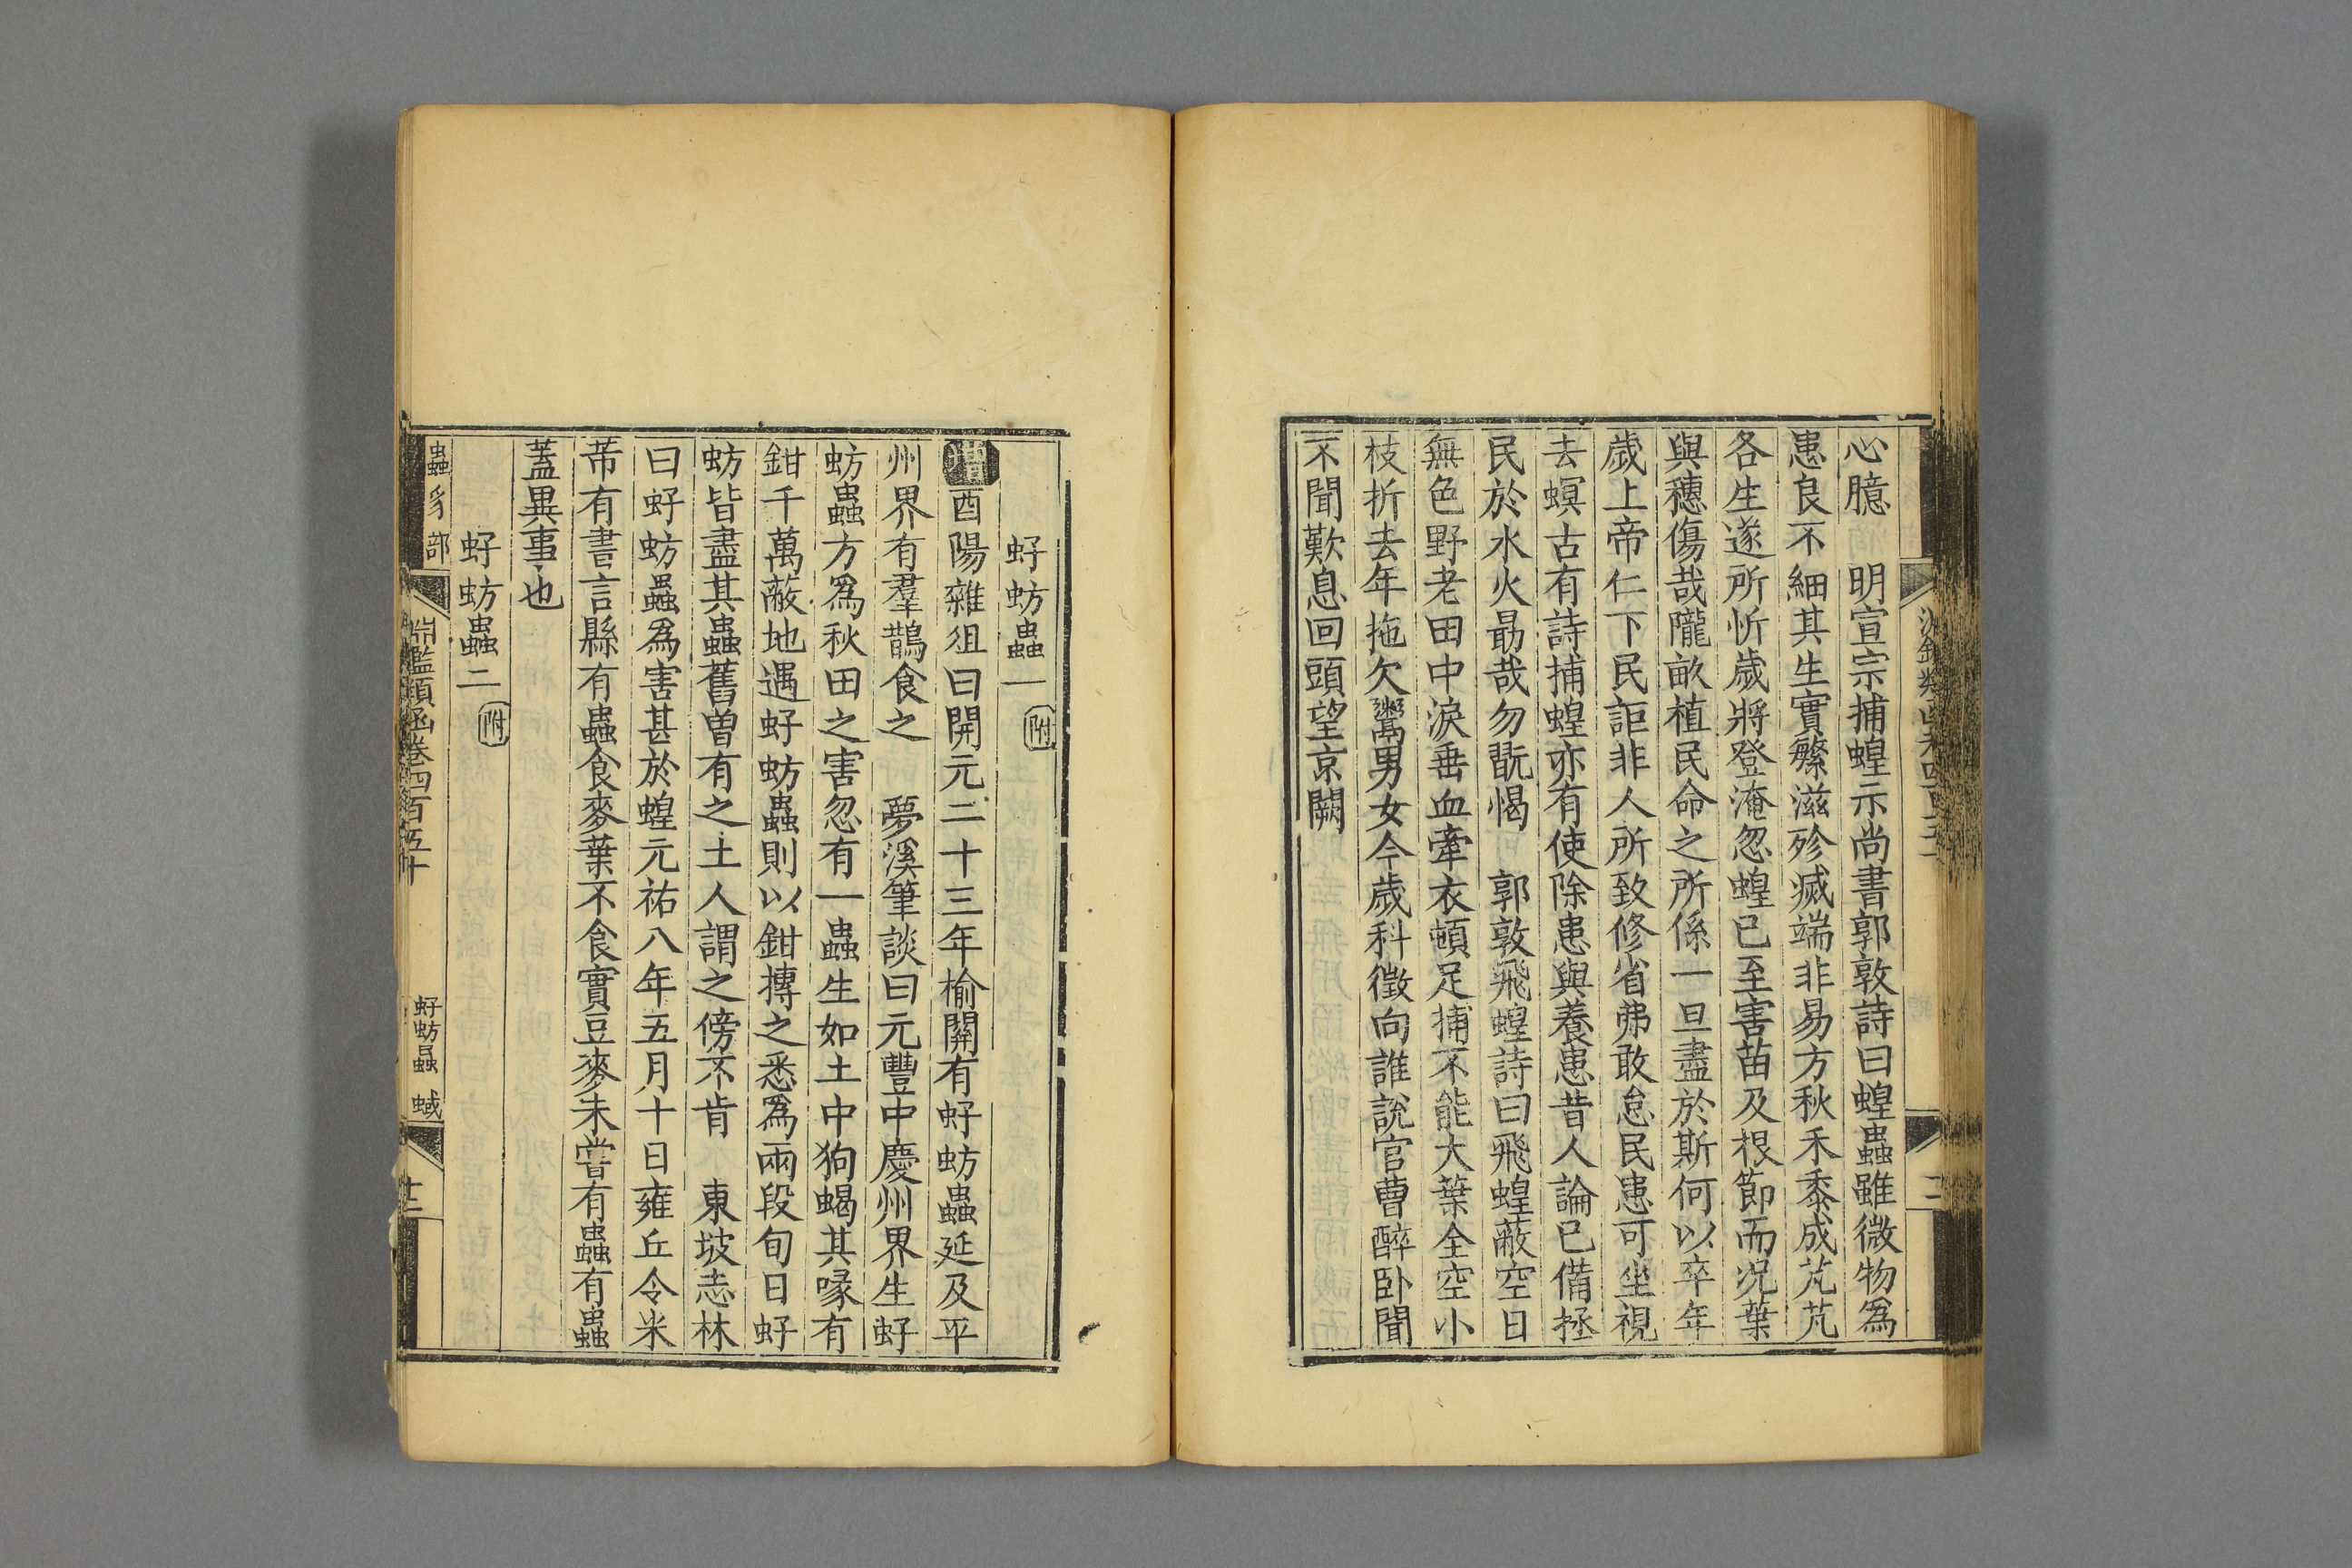 心臆　明宣宗捕蝗示尚書郭敦詩曰蝗蟲雖微物爲
患良不細其生實繁滋殄滅端非易方秋禾黍成芃芃
各生遂所忻歲將登淹忽蝗已至害苗及根節而況葉
與穗傷哉隴畝植民命之所係一旦盡於斯何以卒年
歲上帝仁下民詎非人所致修省弗敢怠民患可坐視
去螟古有詩捕蝗亦有使除患與養患昔人論已備拯
民於水火勗哉勿翫愒　郭敦飛蝗詩曰飛蝗蔽空日
無色野老田中淚垂血牽衣頓足捕不能大葉全空小
枝折去年拖欠鬻男女今歲科徵向誰說官曹醉卧聞
不聞歎息回頭望京闕
虸蚄蟲一附
增酉陽雜俎曰開元二十三年榆關有虸蚄蟲延及平
州界有羣鵲食之　夢溪筆談曰元豐中慶州界生虸
蚄蟲方爲秋田之害忽有一蟲生如土中狗蝎其喙有
鉗千萬蔽地遇虸蚄蟲則以鉗摶之悉爲兩段旬日虸
蚄皆盡其蟲舊曾有之土人謂之傍不肯　東坡志林
曰虸蚄蟲爲害甚於蝗元祐八年五月十日雍丘令米
芾有書言縣有蟲食麥葉不食實豆麥未嘗有蟲有蟲
蓋異事也
虸蚄蟲二附
蟲豸部
淵鑑類函卷四百五十
虸蚄蟲　蜮